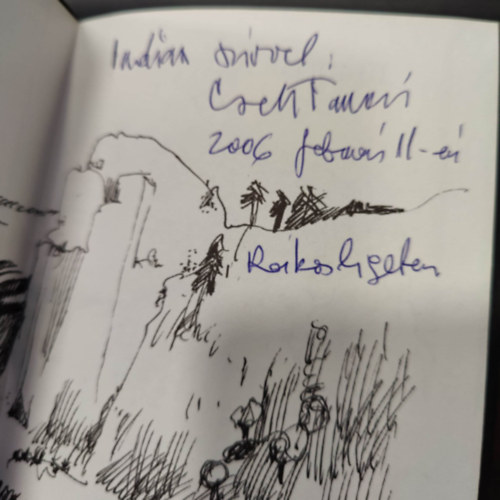 Indián szívvel:
Cseh Tamás
2006 február 11-én
Rákosligeten